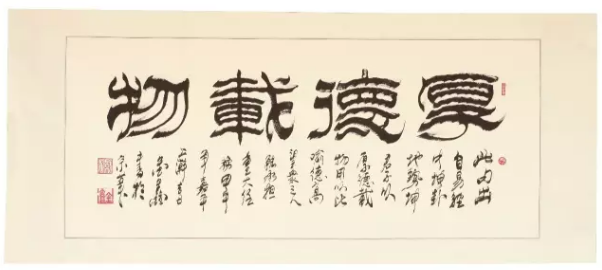 厚德載物
此句出
自易經
中坤卦
地勢坤
君子以
厚德載
物用以比
喻德高
望衆之人
能承擔
重大任
務甲午
年
吉日
書於
京華